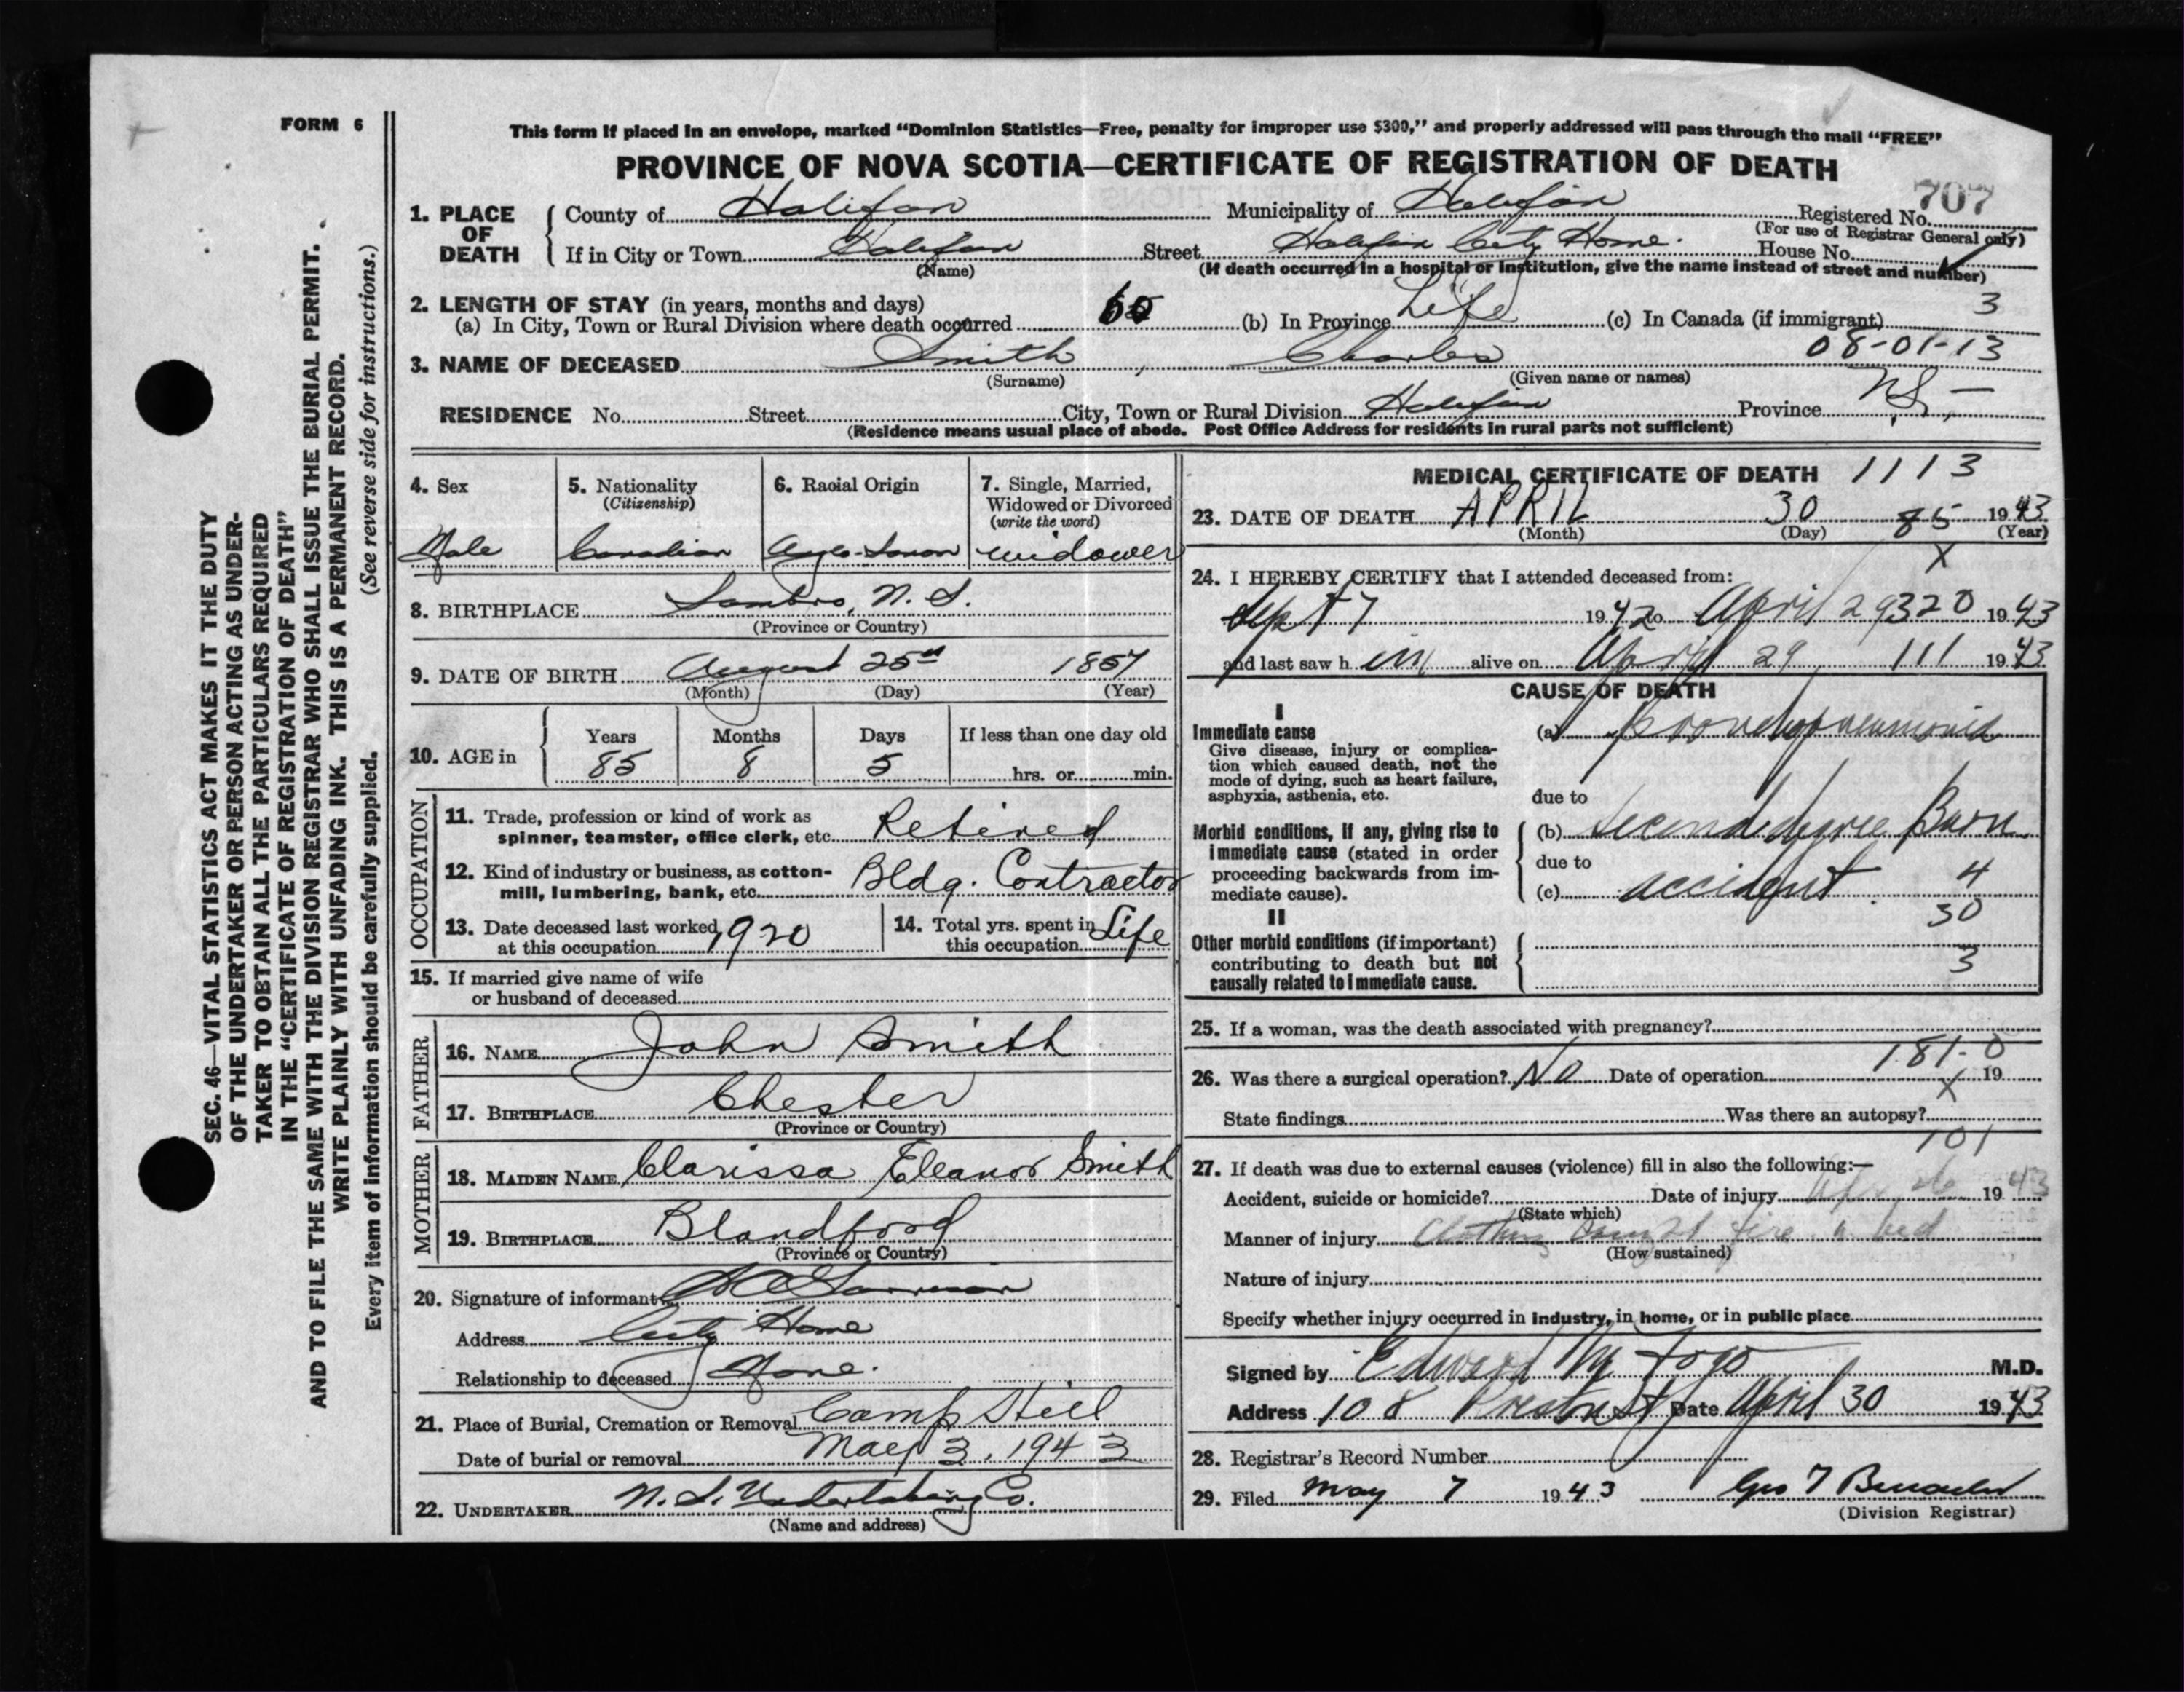 FORM 6
This form if placed in an envelope, marked "Dominion Statistics—Free, penalty for improper use $300," and properly addressed will pass through the mail "FREE"
PROVINCE OF NOVA SCOTIA—CERTIFICATE OF REGISTRATION OF DEATH
707
1. PLACE OF DEATH County of Halifax Municipality of Halifax Registered No.
(For use of Registrar General only)
If in City or Town Halifax Street Halifax City Home. House No.
(Name) (If death occurred in a hospital or institution, give the name instead of street and number)
2. LENGTH OF STAY (in years, months and days)
(a) In City, Town or Rural Division where death occurred (b) In Province Life (c) In Canada (if immigrant) 3
08-01-13
3. NAME OF DECEASED Smith, Charles
(Surname) (Given name or names)
RESIDENCE No. Street City, Town or Rural Division Halifax Province N.S.
(Residence means usual place of abode. Post Office Address for residents in rural parts not sufficient)
4. Sex
Male
5. Nationality
(Citizenship)
Canadian
6. Racial Origin
Anglo-Saxon
7. Single, Married,
Widowed or Divorced
(write the word)
widower
8. BIRTHPLACE Sambro, N. S.
(Province or Country)
9. DATE OF BIRTH August 25th 1857
(Month) (Day) (Year)
10. AGE in
Years Months Days If less than one day old
85 8 5 hrs. or min.
OCCUPATION
11. Trade, profession or kind of work as
spinner, teamster, office clerk, etc. Retired
12. Kind of industry or business, as cotton-
mill, lumbering, bank, etc. Bldg. Contractor
13. Date deceased last worked
at this occupation 1920
14. Total yrs. spent in
this occupation Life
15. If married give name of wife
or husband of deceased
FATHER
16. NAME John Smith
17. BIRTHPLACE Chester
(Province or Country)
MOTHER
18. MAIDEN NAME Clarissa Eleanor Smith
19. BIRTHPLACE Blandford
(Province or Country)
20. Signature of informant
Address City Home
Relationship to deceased None.
21. Place of Burial, Cremation or Removal Camp Hill
Date of burial or removal May 3, 1943
22. UNDERTAKER N. S. Undertaking Co.
(Name and address)
MEDICAL CERTIFICATE OF DEATH 1113
23. DATE OF DEATH APRIL 30 85 1943
(Month) (Day) (Year)
X
24. I HEREBY CERTIFY that I attended deceased from:
Sept 7 1942 to April 29 320 1943
and last saw h im alive on April 29 111 1943
CAUSE OF DEATH
I
Immediate cause
Give disease, injury or complica-
tion which caused death, not the
mode of dying, such as heart failure,
asphyxia, asthenia, etc.
(a) Bronchopneumonia
due to
Morbid conditions, if any, giving rise to
immediate cause (stated in order
proceeding backwards from im-
mediate cause).
(b) Second degree Burn
due to
(c) accident 4
30
II
Other morbid conditions (if important)
contributing to death but not
causally related to immediate cause.
3
25. If a woman, was the death associated with pregnancy?
181-0
26. Was there a surgical operation? No Date of operation 19
X
State findings Was there an autopsy?
101
27. If death was due to external causes (violence) fill in also the following:—
Accident, suicide or homicide? Date of injury Apr. 26 1943
(State which)
Manner of injury Clothing caught fire in bed
(How sustained)
Nature of injury
Specify whether injury occurred in industry, in home, or in public place
Signed by Edward M. Fogo M.D.
Address 108 Preston St Date April 30 1943
28. Registrar's Record Number
29. Filed May 7 1943 Geo
(Division Registrar)
SEC. 46—VITAL STATISTICS ACT MAKES IT THE DUTY
OF THE UNDERTAKER OR PERSON ACTING AS UNDER-
TAKER TO OBTAIN ALL THE PARTICULARS REQUIRED
IN THE "CERTIFICATE OF REGISTRATION OF DEATH"
AND TO FILE THE SAME WITH THE DIVISION REGISTRAR WHO SHALL ISSUE THE BURIAL PERMIT.
WRITE PLAINLY WITH UNFADING INK. THIS IS A PERMANENT RECORD.
Every item of information should be carefully supplied. (See reverse side for instructions.)